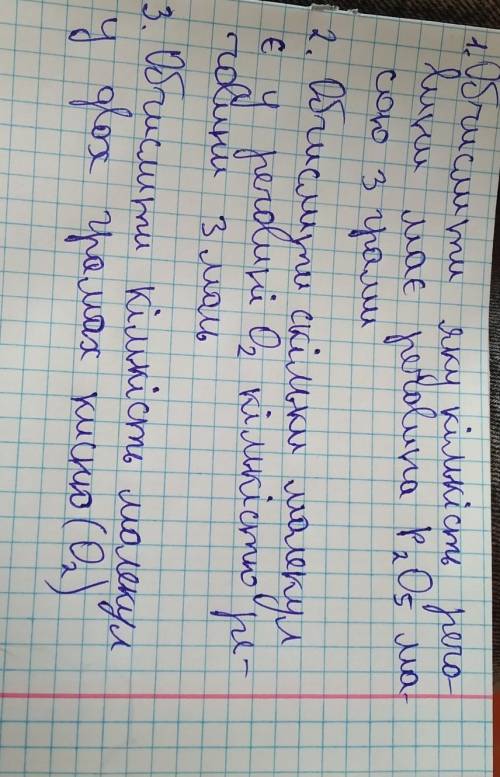 1. Обчислити яку кількість речо-
вини має речовина P₂O₅ ма-
сою 3 грами
2. Обчислити скільки молекул
є у речовині O₂ кількістю ре-
човини 3 моль
3. Обчислити кількість молекул
у двох грамах кисню (O₂)